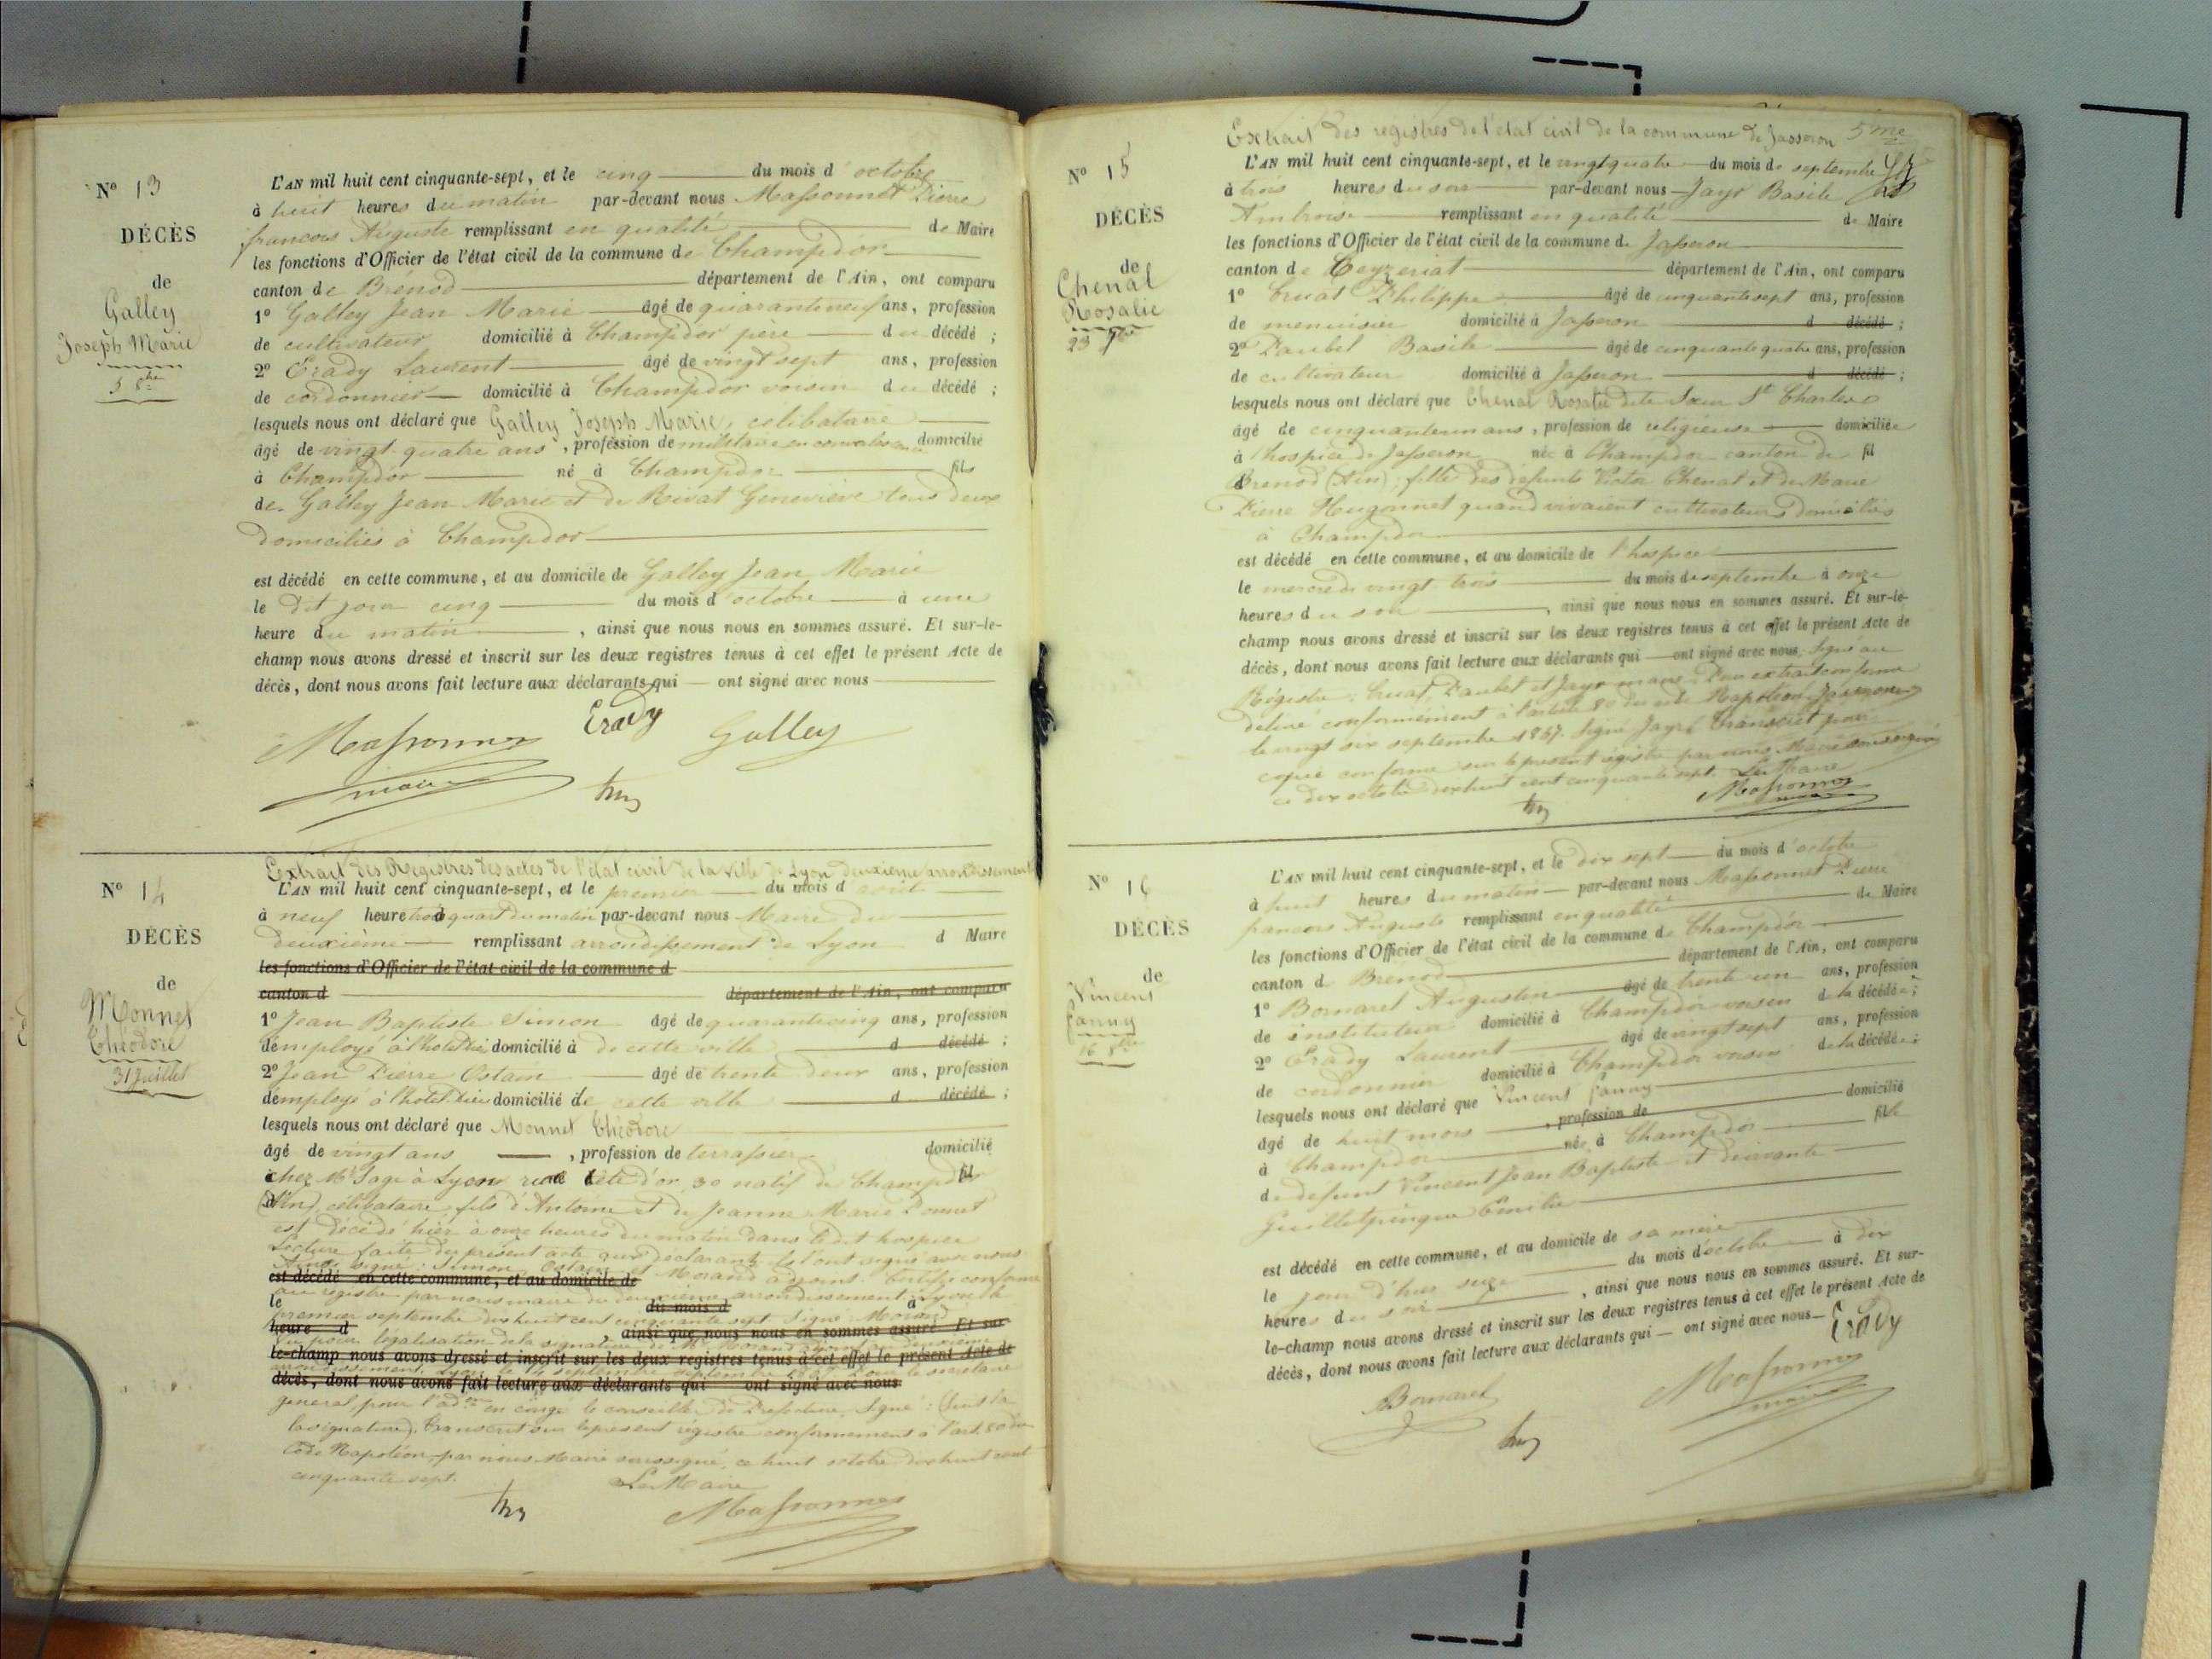 N° 13
DÉCÈS
de
Galley
Joseph Marie
5 8bre
L'AN mil huit cent cinquante-sept, et le cinq du mois d'octobre
à huit heures du matin par-devant nous Massonnet Pierre
françois Auguste remplissant en qualité de Maire
les fonctions d'Officier de l'état civil de la commune de Champdor
canton de Brénod département de l'Ain, ont comparu
1° Galley Jean Marie âgé de quarante neuf ans, profession
de cultivateur domicilié à Champdor père du décédé ;
2° Erady Laurent âgé de vingt sept ans, profession
de cordonnier domicilié à Champdor voisin du décédé ;
lesquels nous ont déclaré que Galley Joseph Marie, célibataire
âgé de vingt quatre ans, profession de militaire en domicilié
à Champdor né à Champdor fils
de Galley Jean Marie et de Rivat Geneviève tous deux
domiciliés à Champdor
est décédé en cette commune, et au domicile de Galley Jean Marie
le dit jour cinq du mois d'octobre à une
heure du matin, ainsi que nous nous en sommes assuré. Et sur-le-
champ nous avons dressé et inscrit sur les deux registres tenus à cet effet le présent Acte de
décès, dont nous avons fait lecture aux déclarants qui ont signé avec nous
Massonnet Erady Galley
maire
N° 14
DÉCÈS
de
Monnet
Théodore
31 Juillet
Extrait des Registres des actes de l'état civil de la ville de Lyon deuxième arrondissement
L'AN mil huit cent cinquante-sept, et le premier du mois d'août
à neuf heure trois quart du matin par-devant nous Maire du
deuxième remplissant arrondissement de Lyon d Maire
les fonctions d'Officier de l'état civil de la commune d
canton d département de l'Ain, ont comparu
1° Jean Baptiste Simon âgé de quarante cinq ans, profession
d'employé à l'hotel Dieu domicilié à de cette ville d décédé ;
2° Jean Pierre Ostain âgé de trente deux ans, profession
d'employé à l'hotel Dieu domicilié de cette ville d décédé ;
lesquels nous ont déclaré que Monnet Théodore
âgé de vingt ans, profession de terrassier domicilié
chez Mr Sage à Lyon rue tête d'or 30 natif de Champdor fil
(Ain) célibataire, fils d'Antoine et de Jeanne Marie
est décédé hier à onze heures du matin dans le dit hospice
Lecture faite du présent acte aux déclarants ils l'ont signé avec nous
signé : Simon, Ostain et Morand adjoint. Certifié conforme
est décédé en cette commune, et au domicile de
au registre par nous maire du deuxième arrondissement. Lyon le
le du mois d à
premier septembre dix huit cent cinquante sept. Signé : Morand
heure d ainsi que nous nous en sommes assuré Et sur
Vu pour légalisation de la signature de Mr Morand
le-champ nous avons dressé et inscrit sur les deux registres tenus à cet effet le présent Acte de
arrondissement Lyon le septembre le secrétaire
décès, dont nous avons fait lecture aux déclarants qui ont signé avec nous
général, pour en congé le conseiller de Préfecture. Signé :
la signature). Transcrit sur le présent registre conformément à l'art. 80 du
Code Napoléon par nous Maire soussigné, ce huit octobre dix huit cent
cinquante sept.
Le Maire
Massonnet
Extrait des registres de l'état civil de la commune de Jasseron 5me
N° 15
DÉCÈS
de
Chenal
Rosalie
23 7bre
L'AN mil huit cent cinquante-sept, et le vingt quatre du mois de septembre
à trois heures du soir par-devant nous Jayr Basile
Ambroise remplissant en qualité de Maire
les fonctions d'Officier de l'état civil de la commune d. Jasseron
canton de Ceyzeriat département de l'Ain, ont comparu
1° Cruat Philippe âgé de cinquante sept ans, profession
de menuisier domicilié à Jasseron d décédé ;
2° Daubel Basile âgé de cinquante quatre ans, profession
de cultivateur domicilié à Jasseron d décédé ;
lesquels nous ont déclaré que Chenal Rosalie dite Sœur St Charles
âgé de cinquante un ans, profession de religieuse domiciliée
à l'hospice de Jasseron née à Champdor canton de fil
Brenod (Ain) ; fille des défunts Victor Chenal et de Marie
Pierre Hugonnet quand vivaient cultivateurs domiciliés
à Champdor
est décédé en cette commune, et au domicile de l'hospice
le mercredi vingt trois du mois de septembre à onze
heures du soir, ainsi que nous nous en sommes assuré. Et sur-le-
champ nous avons dressé et inscrit sur les deux registres tenus à cet effet le présent Acte de
décès, dont nous avons fait lecture aux déclarants qui ont signé avec nous. Signé au
Régistre : Cruat, Daubel et Jayr maire. Pour extrait conforme
délivré conformément à l'article 80 du code Napoléon. Jasseron
le vingt six septembre 1857. Signé Jayr. Transcrit pour
copie conforme sur le présent régistre par nous Maire soussigné
ce dix octobre dix huit cent cinquante sept. Le Maire
Massonnet
maire
N° 16
DÉCÈS
de
Vincent
Fanny
16 8bre
L'AN mil huit cent cinquante-sept, et le dix sept du mois d'octobre
à huit heures du matin par-devant nous Massonnet Pierre
francois Auguste remplissant en qualité de Maire
les fonctions d'Officier de l'état civil de la commune de Champdor
canton d Brénod département de l'Ain, ont comparu
1° Bornarel Augustin âgé de trente un ans, profession
de instituteur domicilié à Champdor voisin de la décédée ;
2° Erady Laurent âgé de vingt sept ans, profession
de cordonnier domicilié à Champdor voisin de la décédée ;
lesquels nous ont déclaré que Vincent Fanny
âgé de huit mois, profession de domicilié
à Champdor née à Champdor fille
de défunt Vincent Jean Baptiste et de vivante
Emilie
est décédé en cette commune, et au domicile de sa mère
le jour d'hier seize du mois d'octobre à dix
heures du soir, ainsi que nous nous en sommes assuré. Et sur-
le-champ nous avons dressé et inscrit sur les deux registres tenus à cet effet le présent Acte de
décès, dont nous avons fait lecture aux déclarants qui ont signé avec nous Erady
Bornarel Massonnet
maire